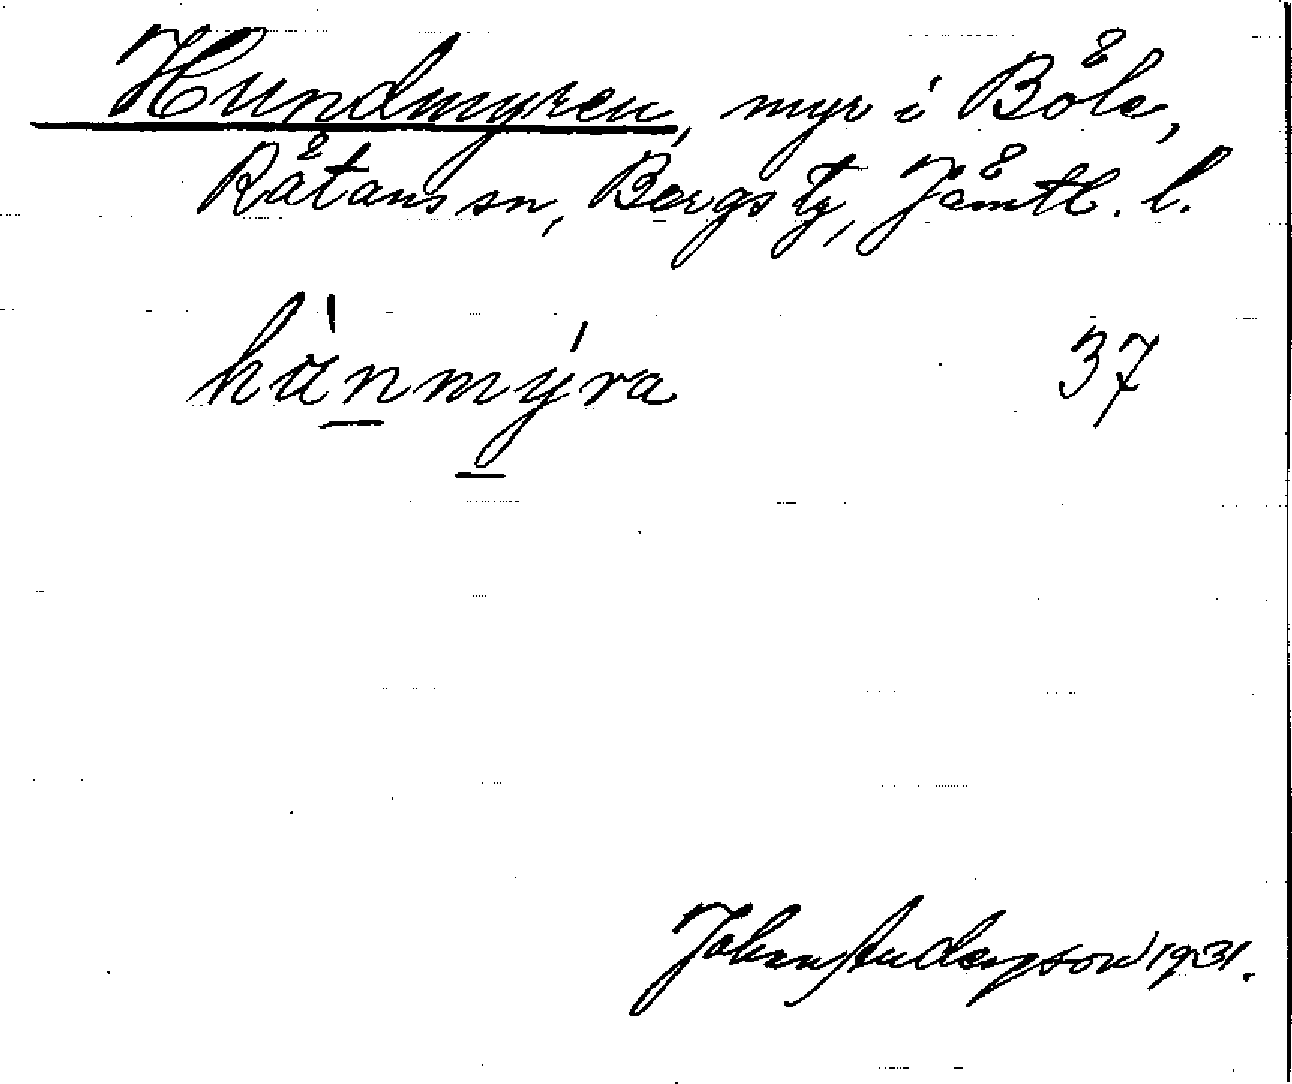 Hundmyren, myr i Böle,
Råtans sn, Bergs tg, Jämtl. l.
hänmýra 37
Johan Anderson 1931.